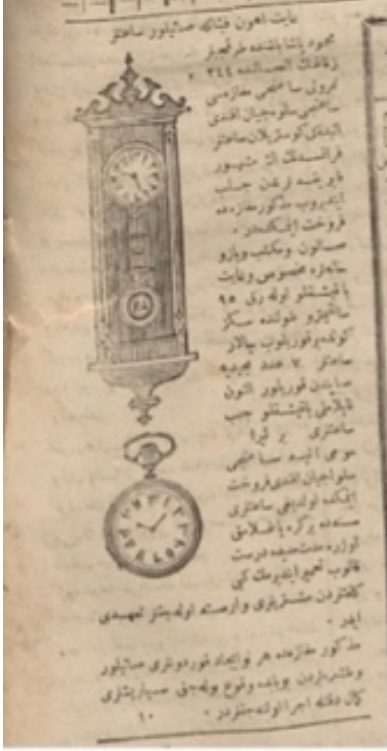 غایت اهون فیئاتله صاتیلور ساعتلر
محمود پاشا باشنده خرقه‌جیلر
زقاقنك اتصالنده ٣٤٤
نومرولی ساعتجی مغازه‌سی
ساعتجی سلوجیان افندی
آتیده‌كی كوستریلان ساعتلر
فرانسه‌نك اڭ مشهور
فابریقه‌لرندن جلب
ایتدیروب مذكور مغازه‌ده
فروخت ایتمكده‌در .
صالون ومكتب ویازو
خانه‌لره مخصوص وغایت
یاقیشقلو اوله‌رق ٩٥
سانتیمترو طولنده سكز
كونده بر قوریلوب چالار
ساعتلر ٧ عدد مجیدیه
صاپندن قوریلور التون
قاپلاملی یاقیشقلو جیب
ساعتلری بر لیرا
مومی الیه ساعتجی
سلواجیان افندی فروخت
ایتمكده اولدیغی ساعتلری
سنه‌ده بر كره یاغلامق
اوزره مدت مدیده درست
قالوب تعمیر ایتدیرمك كبی
كلفتلردن مشتریلری وارسته اوله‌جغنی تعهد
ایدر .
مذكور مغازه‌ده هر نوایجاد قوردونلری صاتیلور
وطشره‌لردن بوبابده وقوع بوله‌جق سپارشلری
كمال دقتله اجرا اولنه‌جقدر .
١٠